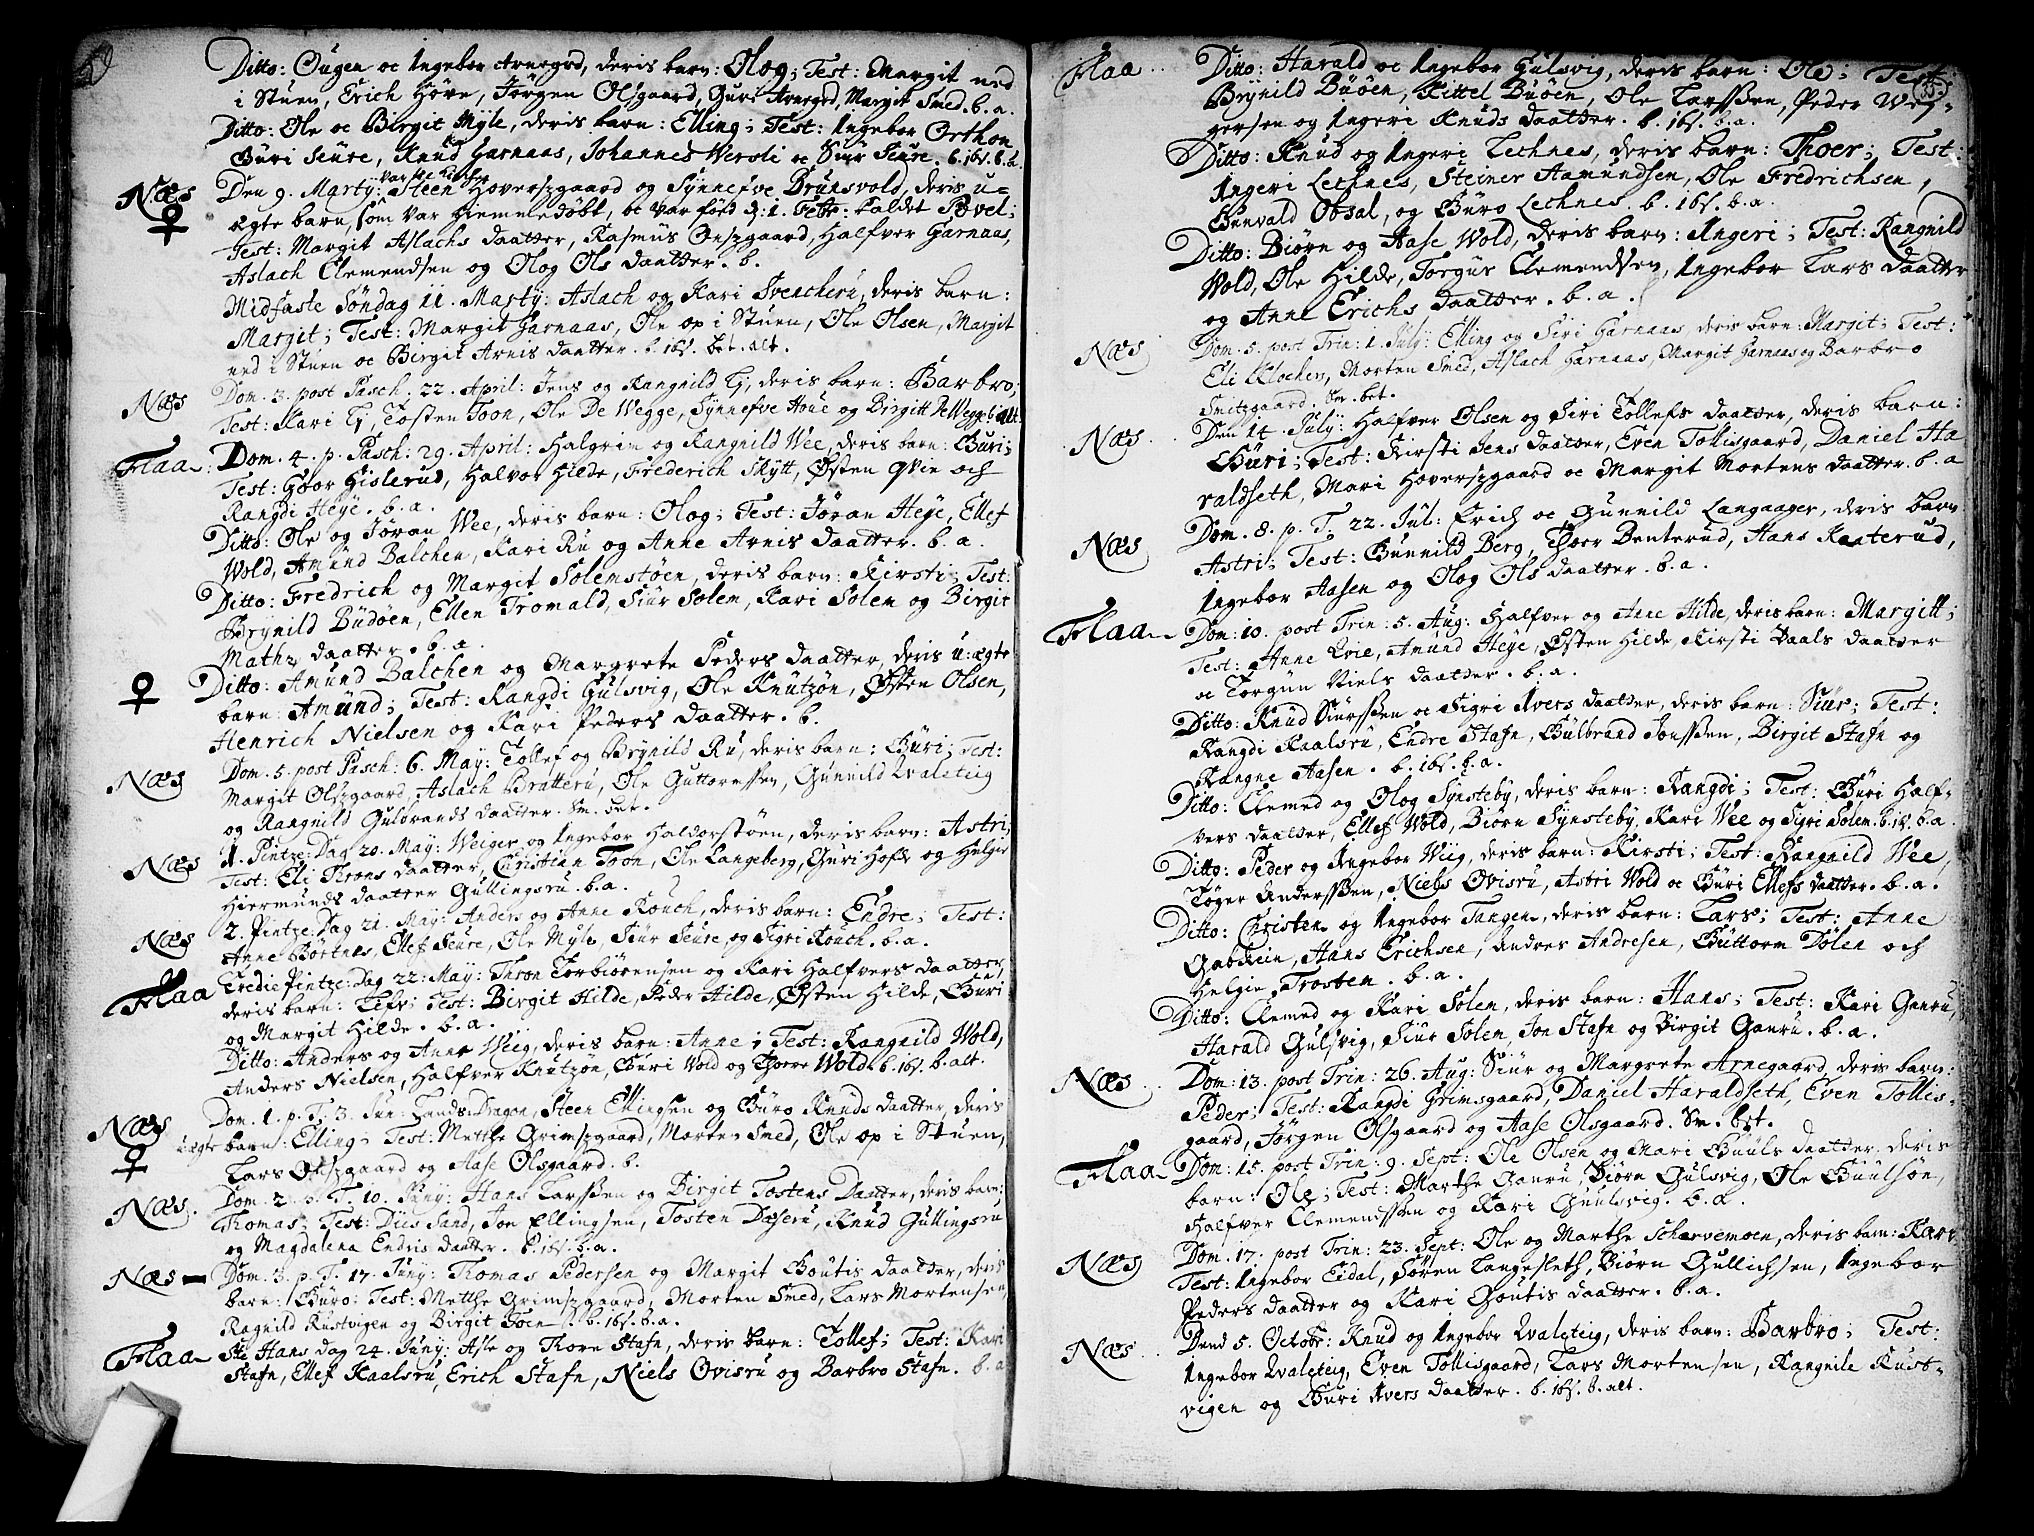 Ditto: Ougen oc Ingebor Arnegrd, deris barn: Olog; Test: Margit ned
i Stuen, Erich Höve, Jörgen Olsgaard, Guri Arnegrd, Margit Smed. b. a.
Ditto: Ole oc Birgit Myle, deris barn: Elling; Test: Ingebor Orthon
Guri Seüre, Knud Garnaas, Johannes Versli oc Siur Seüre. b. 16s. b. a.
Næs Den 9. Marty: var ste Kirche Steen Hoverszgaard og Synnefve Brunsvold, deris u=
ægte barn, som var hiemmedöbt, oc var föed d: 1. Febr: kaldet Povel;
Test: Margit Aslachs daatter, Rasmus Onszgaard, Halfver Garnaas,
Aslach Clemendsen og Olog Ols daatter. b.
Midfaste Söndag 11. Marty: Aslach og Kari Svencheru, deris barn:
Margit; Test: Margit Garnaas, Ole op i Stuen, Ole Olsen, Margit
ned i Stuen oc Birgit Arnis daatter. b. 16s. bet. alt.
Næs Dom. 3. post Pasch: 22. April: Jens og Rangnild Ej, deris barn: Barbro;
Test: Kari Ej, Tosten Toon, Ole De Wegge, Synnefve Houe og Birgitt De Wegge. b. alt.
Flaa Dom. 4. p. Pasch: 29. April: Halgrim og Rangnild Wee, deris barn: Guri;
Test: Goor Gislerud, Halvor Hilde, Frederich Skytt, Østen Qvie och
Rangdi Heye. b. a.
Ditto: Ole og Jöran Wee, deris barn: Olog; Test: Jöran Heye, Ellef
Wold, Amünd Balchen, Kari Ru og Anne Arnis daatter. b. a.
Ditto: Fredrich og Margit Solemstöen, deris barn: Kirsti; Test:
Brynild Büdöen, Ellen Tromald, Siur Solem, Kari Solem og Birgit
Mathz daatter. b. a.
Ditto: Amund Balchen og Margrete Peders daatter, deris u:ægte
barn: Amünd; Test: Rangdi Gulsvig, Ole Knutzön, Østen Olsen,
Henrich Nielsen og Kari Peders daatter. b.
Næs Dom. 5. post Pasch: 6. May: Tollef og Brynild Ru, deris barn: Guri; Test:
Margit Olszgaard, Aslach Bratteru, Ole Guttormssen, Gunnild Qvaleteig
og Rangnild Gulbrands daatter. Sm. bet.
Næs 1. Pintze: Dag 20. May: Weiger og Ingebor Haldorstöen, deris barn: Astri;
Test: Eli Throns daatter, Christian Toon, Ole Langeberg, Guri Hofde og Helgie
Hiermunds daatter Gullingsru. b. a.
Næs 2. Pintze: Dag 21. May: Anders og Anne Rouch, deris barn: Endre; Test:
Anne Börtnes, Ellef Seüre, Ole Myle, Siur Seüre, og Sigri Rouch. b. a.
Flaa Tredie Pintze: Dag 22: May: Thron Torbiörensen og Kari Halfvers daatter,
deris barn: Lefv; Test: Birgit Hilde, Peder Hilde, Østen Hilde, Guri
og Margit Hilde. b. a.
Ditto: Anders og Anne Wiig, deris barn: Anne; Test: Rangnild Wold,
Anders Nielsen, Halfver Knutzön, Guri Wold og Thorre Wold. b. 16s. b. alt.
Næs Dom. 1. p. T. 3. Jun: Lands:Dragon, Steen Ellingsen og Guro Knuds daatter, deris
uægte barn: Elling; Test: Metthe Grimszgaard, Morten Smed, Ole op i Stuen,
Lars Olszgaard og Aase Olsgaard. b.
Næs. Dom. 2. p. T. 10. Juny: Hans Larssen og Birgit Tostens Daatter, deris barn:
Thomas; Test: Diis Sand, Jon Ellingsen, Tosten Dæseru, Knud Gullingsru
og Magdalena Endris daatter. b. 16s. b. a.
Næs Dom. 3. p. T. 17. Juny: Thomas Pedersen og Margit Goutis daatter, deris
barn: Guro; Test: Metthe Grimszgaard, Morten Smed, Lars Mortensen,
Ragnild Rustvigen og Birgit Toen. b. 16s. b. a.
Flaa Ste Hans dag 24. Juny: Asle og Thorn Stafn, deris barn: Tollef; Test: Kari
Stafn, Ellef Kaalsru, Erich Stafn, Niels Ovisru og Barbro Stafn. b. a
35.
Flaa Ditto: Harald oc Ingebor Gulsvig, deris barn: Ole; Test:
Brynild Büöen, Kittel Büöen, Ole Larssen, Peder Wey=
gersen og Ingeri Knuds daatter. b. 16s. b. a.
Ditto: Knud og Ingeri Lechnes, deris barn: Thoer; Test:
Ingeri Lechnes, Steiner Aamundsen, Ole Fredrichsen,
Gunvald Obsal, og Guro Lechnes. b. 16s. b. a.
Ditto: Biörn og Aase Wold, deris barn: Ingeri; Test: Rangnild
Wold, Ole Hilde, Torgür Clemendsen, Ingebor Lars daatter
og Anne Erichs daatter. b. a.
Næs Dom. 5. post Trin: 1. July: Elling og Siri Garnaas, deris barn: Margit; Test:
Eli Klochen, Morten Smed, Aslach Garnaas, Margit Garnaas og Barbro
Smitzgaard. Sm. bet.
Næs Den 14. July: Halfver Olsen og Siri Tollefs daatter, deris barn:
Guri; Test: Kirsti Jens daatter, Even Tollisgaard, Daniel Ha
raldseth, Mari Hoverszgaard oc Margit Mortens daatter. b. a
Næs Dom. 8. p. T. 22. Jul: Erich oc Gunnild Langaager, deris barn
Astri; Test: Gunnild Berg, Thoer Benterud, Hans Kaaterud,
Ingebor Aasen og Olog Ols daatter. b. a.
Flaa Dom: 10. post Trin: 5. Aug: Halfver og Anne Hilde, deris barn: Margitt;
Test: Anne Qvie, Amund Heye, Østen Hilde, Kirsti Paals daatter
oc Torgun Niels daatter. b. a.
Ditto: Knud Siurssen oc Sigri Ivers daatter, deris barn: Siür; Test:
Rangdi Kaalsru, Endre Stafn, Gulbrand Jonssen, Birgit Stafn og
Rangne Aasen. b. 16s. b. a.
Ditto: Clemed og Olog Synsteby, deris barn: Rangdi; Test: Guri Half=
vers daatter, Ellef Wold, Biörn Synsteby, Kari Wee og Sigri Solem. b. 16s. b. a.
Ditto: Peder og Ingebor Wiig, deris barn: Kirsti; Test: Rangnild Wee,
Töger Anderssen, Niels Ovisru, Astri Wold oc Guri Ellefs daatter. b. a.
Ditto: Christen og Ingebor Tangen, deris barn: Lars; Test: Anne
Gabchein, Hans Erichsen, Anders Andresen, Guttorm Tölen och
Helgie Trosten. b. a.
Ditto: Clemed og Kari Solem, deris barn: Hans; Test: Kari Ganru,
Harald Gulsvig, Siur Solem, Jon Stafn og Birgit Ganru. b. a.
Næs Dom: 13. post Trin: 26. Aug: Siür og Margrete Arnegaard, deris barn:
Peder; Test: Rangdi Grimsgaard, Daniel Haraldseth, Even Tollis=
gaard, Jörgen Olsgaard og Aase Olsgaard. Sm. bet.
Flaa Dom: 15. post Trin: 9. Sept: Ole Olsen og Mari Guuls daatter, deris
barn: Ole; Test: Marthe Ganru, Biörn Gulsvig, Ole Guulsön,
Halfver Clemendssen og Kari Guulsvig. b. a.
Næs Dom. 17. post Trin: 23. Sept: Ole og Marthe Scharvemoen, deris barn: Kari
Test: Ingebor Eidal, Sören Langesleth, Biörn Gullichsen, Ingebor
Peders daatter og Kari Goutis daatter. b. a.
Næs Dend 5. Octobr: Knud og Ingebor Qvaleteig, deris barn: Barbro; Test:
Ingebor Qvaleteig, Even Tollisgaard, Lars Mortensen, Rangnile Rust=
vigen og Guri Ivers daatter. b. 16s. b. alt.